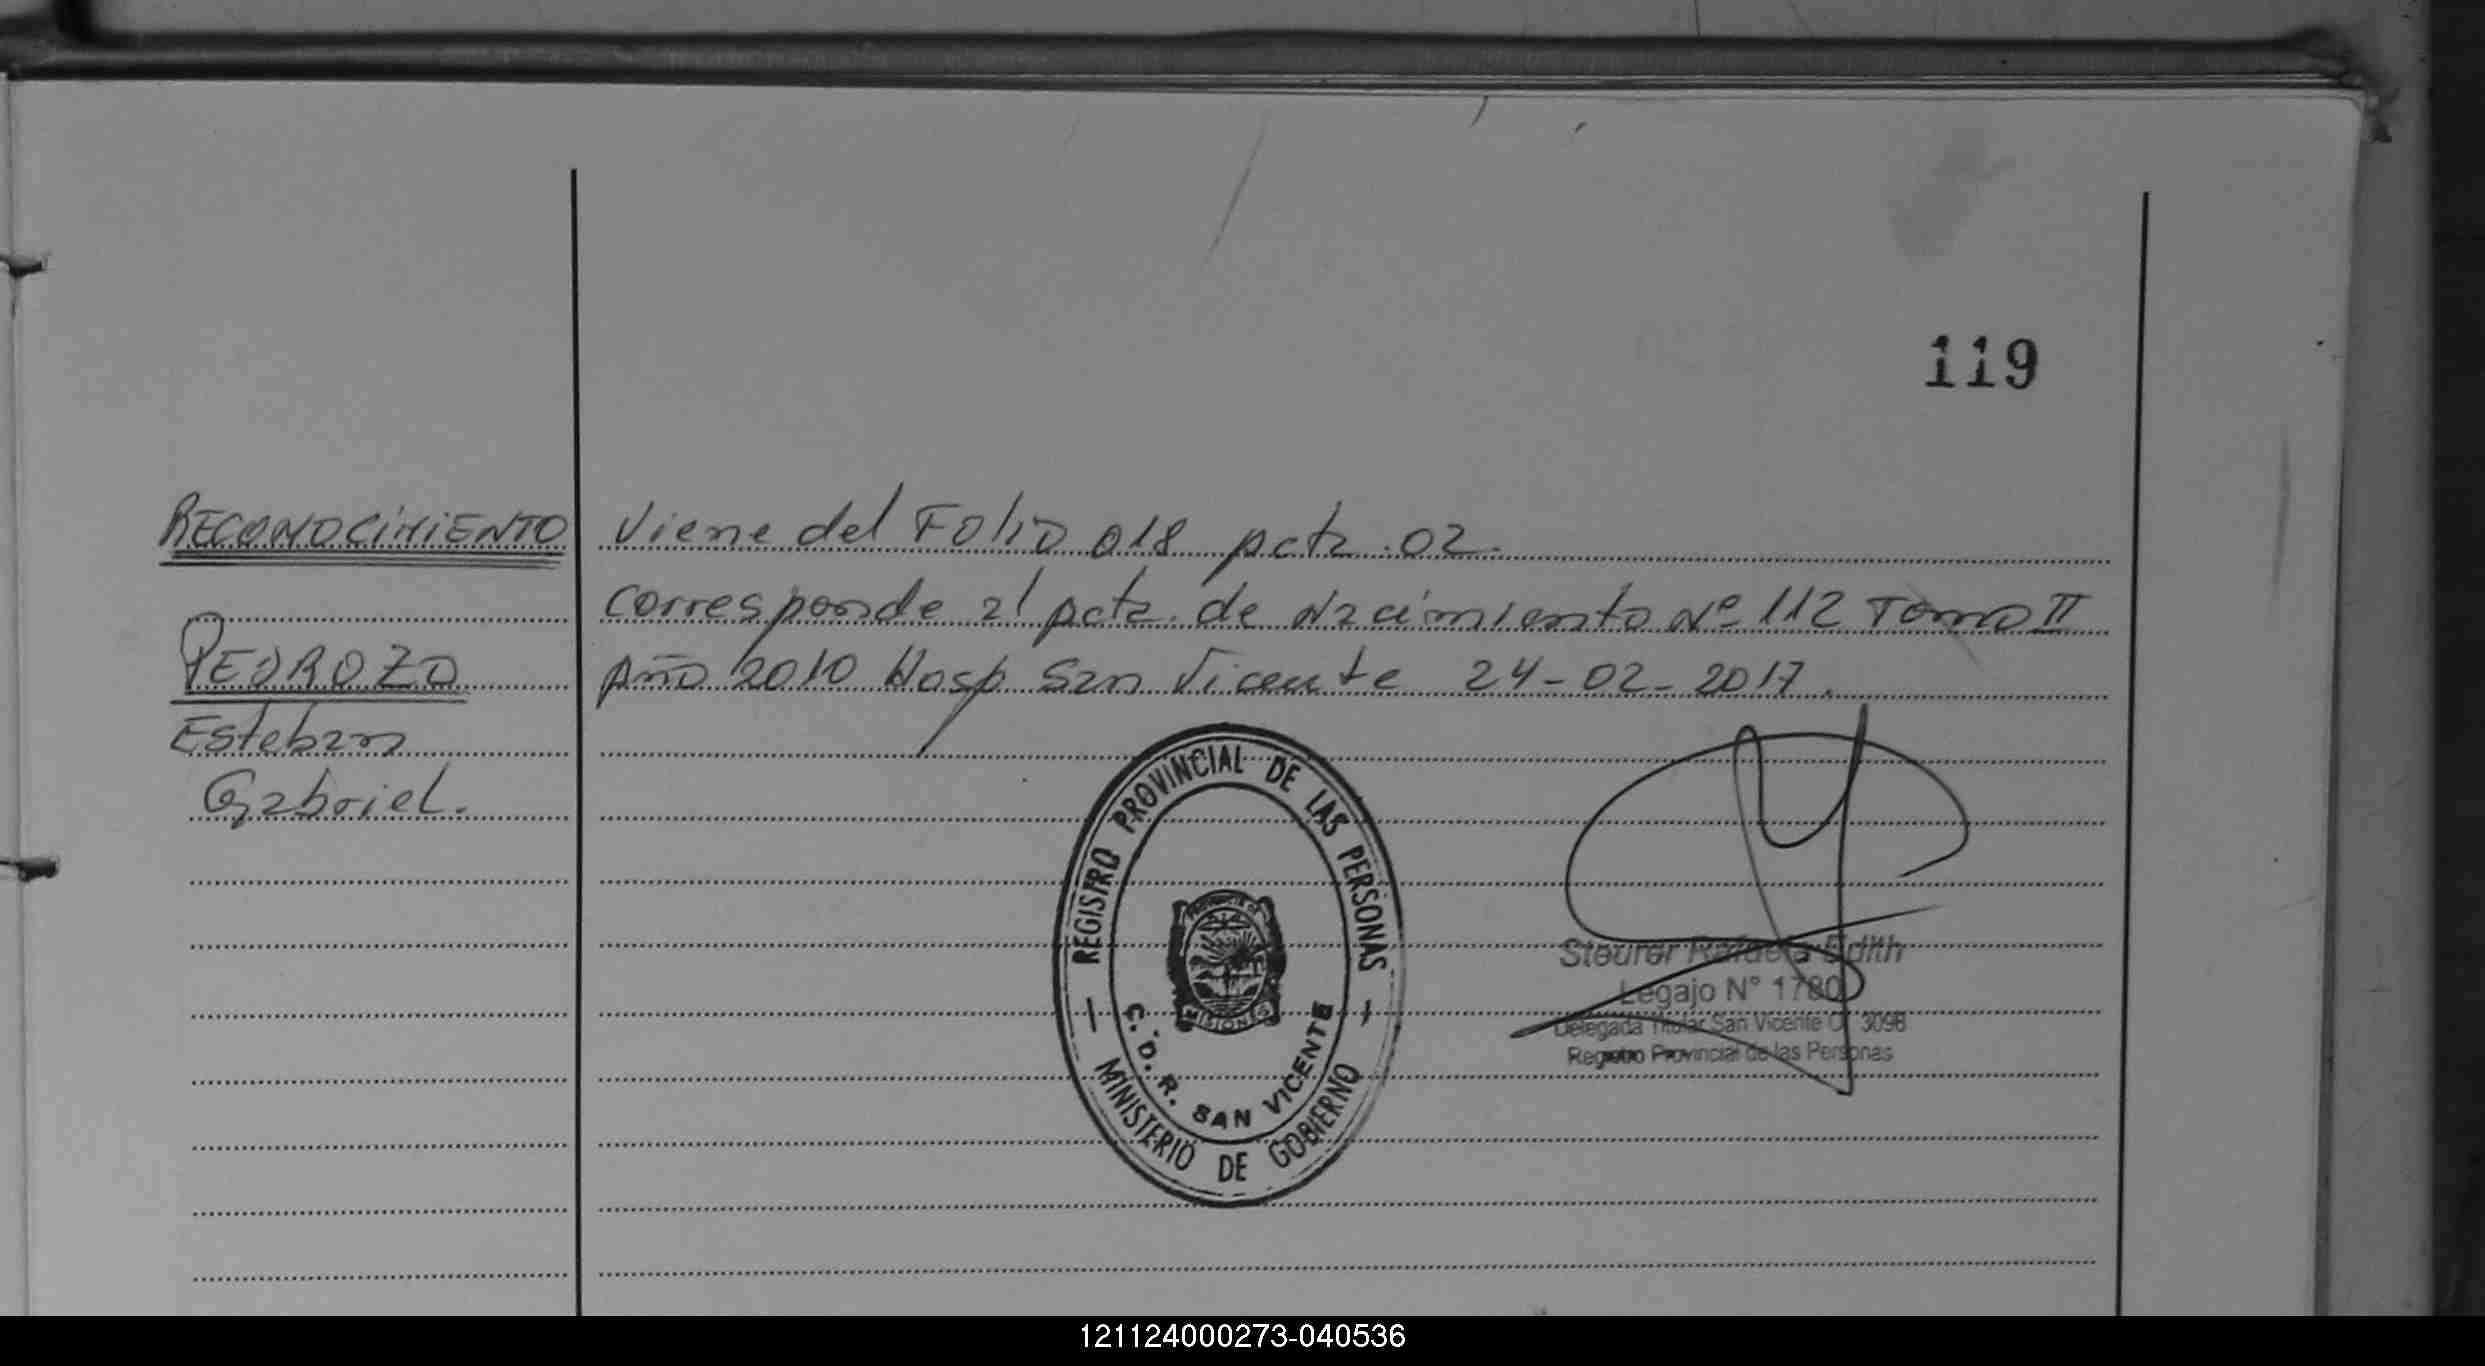 119
RECONOCIMIENTO
PEDROZO
Esteban
Gabriel.
Viene del Folio 018 acta 02.
Corresponde al acta de Nacimiento Nº 112 Tomo II
Año 2010 Hosp San Vicente 24-02-2017.
REGISTRO PROVINCIAL DE LAS PERSONAS
MINISTERIO DE GOBIERNO
C.D.R. SAN VICENTE
PROVINCIA DE
MISIONES
Steurer Rafaela Edith
Legajo N° 1780
Delegada Titular San Vicente Of 3098
Registro Provincial de las Personas
121124000273-040536